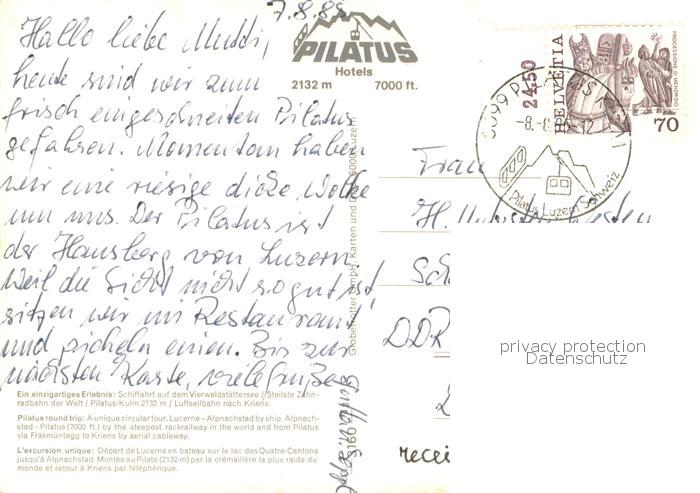 7.8.88
Hallo liebe Mutti,
heute sind wir zum
frisch eingeschneiten Pilatus
gefahren. Momentan haben
wir eine riesige dicke Wolke
um uns. Der Pilatus ist
der Hausberg von Luzern.
Weil die Sicht nicht so gut ist,
sitzen wir im Restaurant
und picheln einen. Bis zur
nächsten Karte, viele Grüße
PILATUS
Hotels
2132 m 7000 ft.
Ein einzigartiges Erlebnis: Schiffahrt auf dem Vierwaldstättersee // Steilste Zahn-
radbahn der Welt / Pilatus-Kulm 2132 m / Luftseilbahn nach Kriens.
Pilatus round trip: A unique circular tour. Lucerne – Alpnachstad by ship. Alpnach-
stad – Pilatus (7000 ft.) by the steepest rackrailway in the world and from Pilatus
via Frakmüntegg to Kriens by aerial cableway.
L'excursion unique: Départ de Lucerne en bateau sur le lac des Quatre-Cantons
jusqu'à Alpnachstad. Montée au Pilate (2132 m) par la crémaillère la plus raide du
monde et retour à Kriens par téléphérique.
GmbH, Karten und
Luzern
24.50
HELVETIA
PROCESSIONE DI MENDRISIO
70
Pilatus Luzern Schweiz
Frau
DDR
privacy protection
Datenschutz